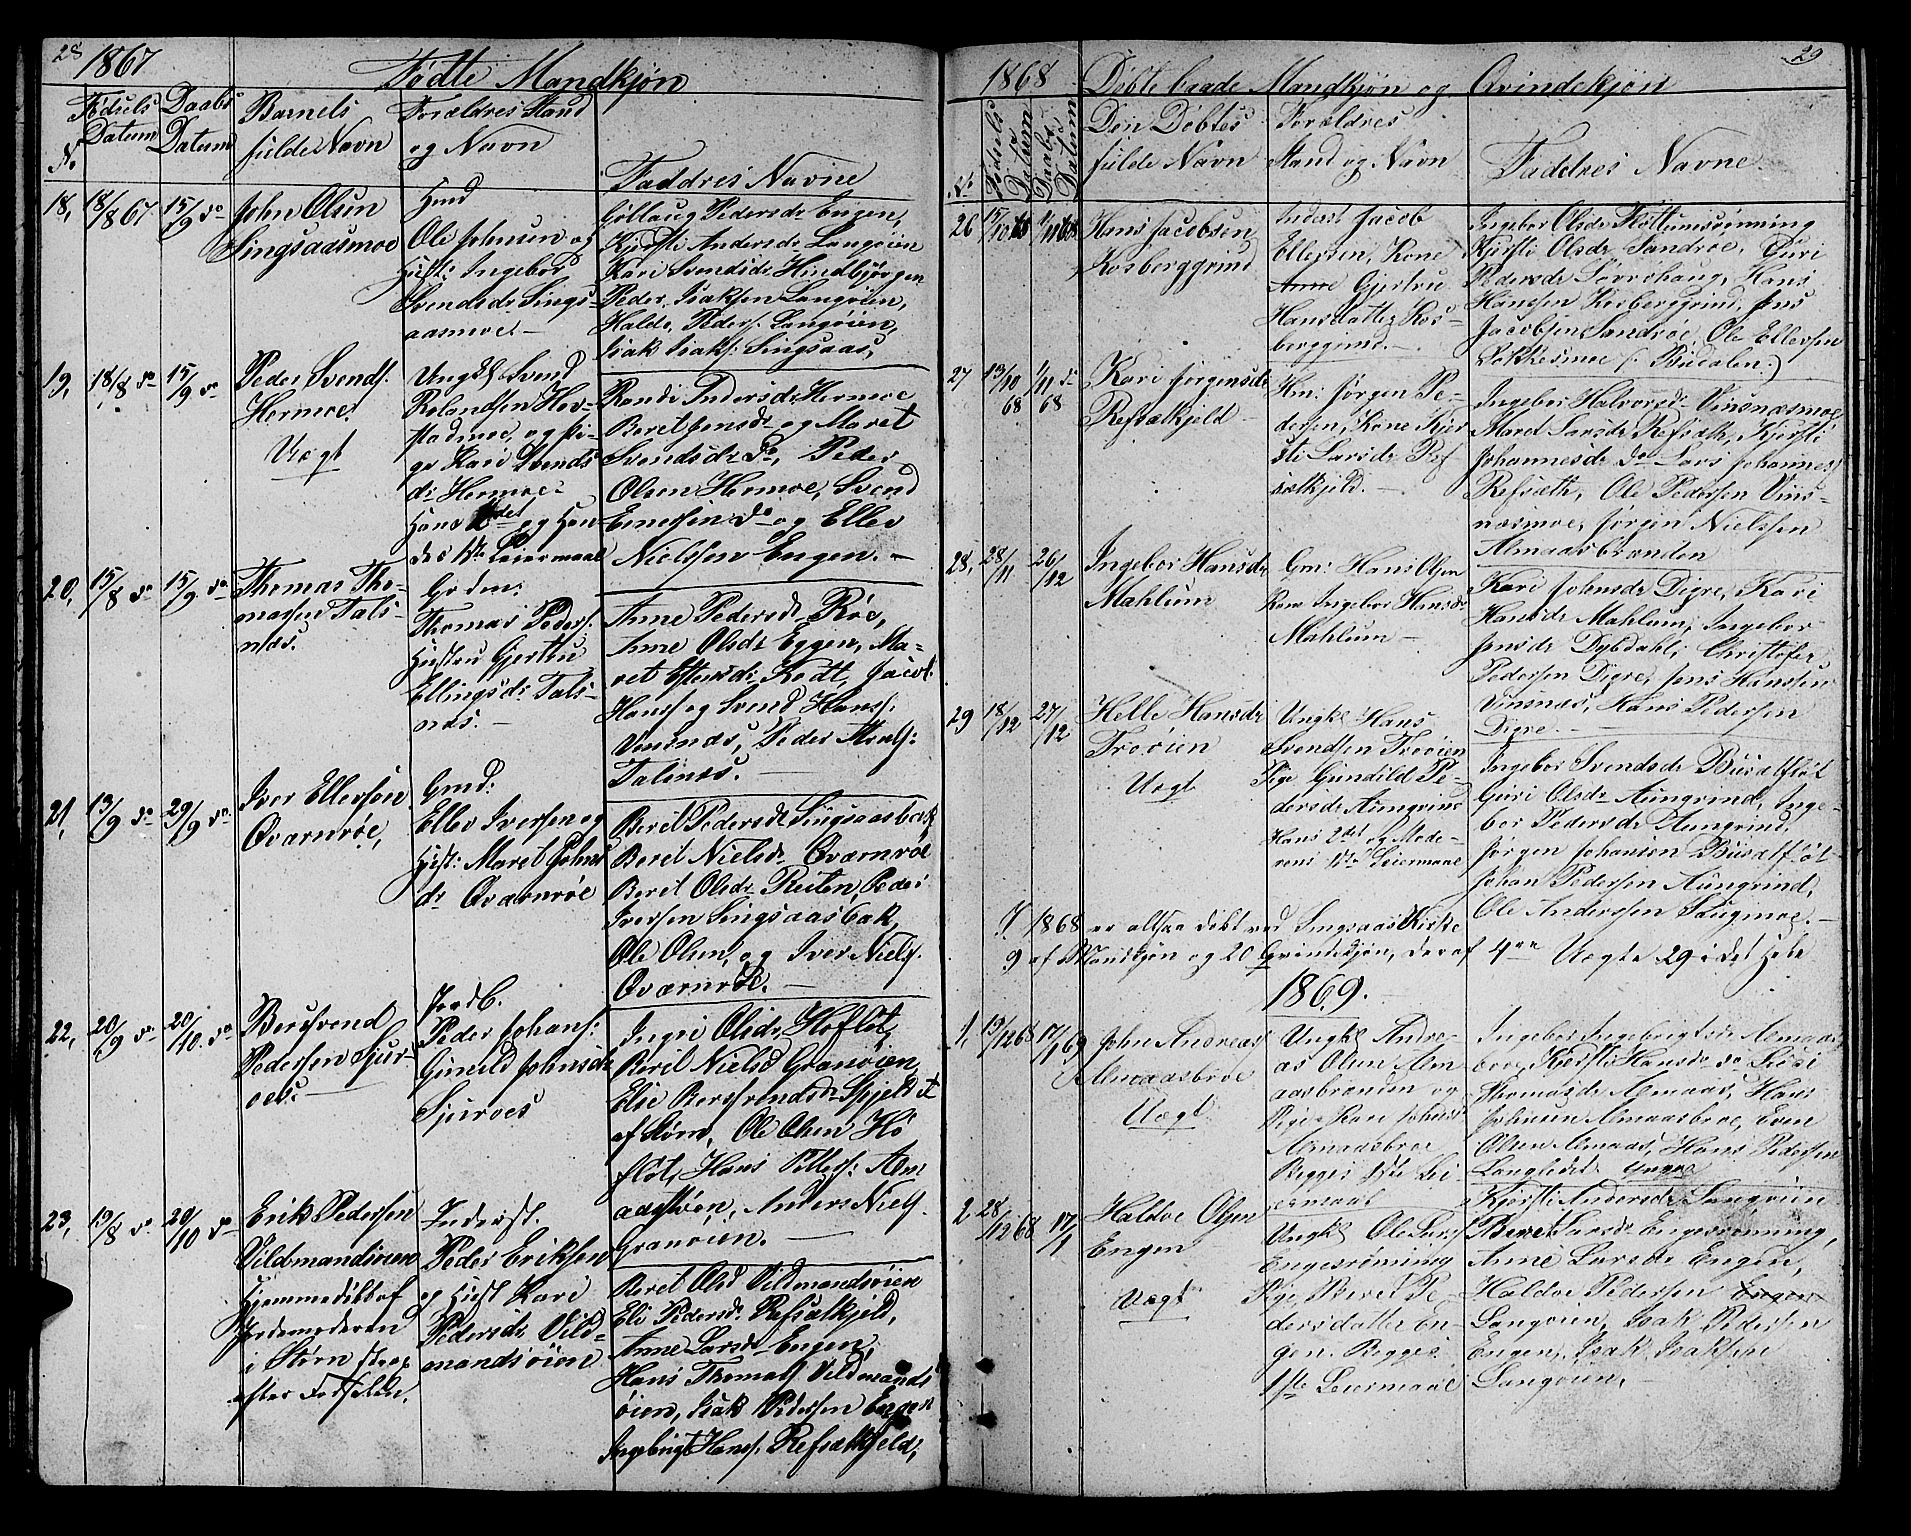 28 1867
Fødte Mandkjøn
No. Fødsels Datum
Daabs Datum
Barnets fulde Navn
Forældres Stand og Navn
Faddres Navne
18, 18/8 67 15/9 do
John Olsen
Singsaasmoe
Hmd
Ole Johnsen og
Hust: Ingebor
Svendsdr Sings-
aasmoe. -
Gollaug Pedersdr Engen,
Kjersti Andersdr Langøien
Kari Svendsdr Hindbjørgen
Peder Isaksen Langøien,
Haldo Peders. Langøien,
Isak Isaks: Singsaas,
19, 18/8 do 15/9 do
Peder Svends.
Hermoe.
Uægt
Ungk. Svend
Rolandsen Hov-
stadmoe, og Pi-
ge Kari Svends
dr Hermoe.
Hans 2det og Hen-
des 1ste Leiermaal
Randi Pedersdr Hermoe
Berit Jensdr og Maret
Svendsdr do, Peder
Olsen Hermoe, Svend
Enersen do og Eller
Nielssen Engen. -
20, 15/8 do 15/9 do
Thomas Tho-
massen Tals-
næs.
Grdm:
Thomas Peders:
Hustru Gjertru
Ellingsdr Tals-
næs. -
Anne Pedersdr Røe,
Anne Olsdr Eggen, Ma-
ret Estensdr Kodt, Jacob
Hanss og Svend Hans:
Vinsnæs, Peder Arnts:
Talsnæs. -
21, 13/9 do 29/9 do
Iver Ellersen
Qværnrøe,
Gmd:
Eller Iversen og
Hust: Maret Johns
dr Qværnrøe
Berit Pedersdr Singsaasbak
Berit Nielsdr Qværnrøe
Berit Olsdr Reiten, Peder
Iversen Singsaasbak,
Ole Olsen, og Iver Niels.
Qværnrøe. -
22, 20/9 do 20/10 do
Bersvend
Pedersen Sjur-
oes. -
Jordb.
Peder Johans:
Gunild Johnsdr
Sjuroes
Ingri Olsdr Hofløt,
Berit Nielsd Granøien,
Elie Bersvendsdr Spjeldet
af Støren, Ole Olsen Hø
fløt, Hans Pitters: Alm
aastrøen, Anders Niels.
Granøien. -
23, 19/8 do 20/10 do
Erik Pedersen
Vildmandsøien
Hjemmedøbt af
Jordemoderen
i Støren strax
efter Fødselen.
Inderst.
Peder Eriksen
og Hust Kari
Pedersdr Vild-
mandsøien
Beret Olsd Vildmandsøien
Eli Pedersdr Refsætkjeld,
Anne Larsdr Engen,
Hans Thomas Vildmands
øien, Isak Pedersen Engen
Ingebrigt Hanss. Refsætkjeld,
29
1868 Døbte baade Mandkjøn og Qvindekjøn
No. Fødsels Datum
Daabs Datum
Den Døbtes fulde Navn
Forældres Stand og Navn
Faddres Navne
26 15/10 68 1/11 68
Hans Jacobsen
Kosberggrind
Inderst Jacob
Ellersen, Kone
Anne Gjertru
Hansdatter Kos-
berggrind. -
Ingebor Olsdr Fløttumsrønning
Kjersti Olsdr Sandroe, Guri
Pedersdr Sørrehaug, Hans
Hanssen Kosberggrind, Jens
Jacobsen Sandroe, Ole Ellersen
Løkkesmoe (: Budalen:)
27 13/10 68 1/11 do 68
Kari Jørgensdr
Refsætkjeld -
Hm: Jørgen Pe-
dersen, Kone Kjer
sti Larsdr Ref
sætkjeld. -
Ingebor Halvorsdr Vinsnæsmoe,
Maret Larsdr Refsæth, Kjersti
Johannesdr do Lars Johanness
Refsæth, Ole Pedersen Vins-
næsmoe, Jørgen Nielssen
Almaasbranden
28, 28/11 26/12
Ingebor Hansdr
Mahlum
Gm: Hans Olsen
Kone Ingebor Hansdr
Mahlum -
Kari Johnsdr Digre, Kari
Hansdr Mahlum, Ingebor
Jensdr Dybdahl, Christofer
Pedersen Digre, Jens Hanssen
Vinsnæs, Hans Pedersen
Digre. -
29 18/12 27/12
Helle Hansdr
Troøien
Uægt
Ungk. Hans
Svendsen Troøien
Pige Gunild Pe-
dersdr Aungrind
Hans 2det og Mode-
rens 1ste Leiermaal
Ingebor Svendsdr Busætfløt
Guri Olsdr Aungrind, Inge-
bor Pedersdr Aungrind,
Jørgen Johansen Busætfløt
Johan Pedersen Aungrind,
Ole Andersen Haugmoe. -
I 1868 er altsaa døbt ved Singsaas Kirke
9 af Mandkjøn og 20 Qvindekjøn, deraf 4re Uægte 29 i det Hele
1869.
1, 13/12 68 17/1 69
John Andreas
Almaasbroe
Uægt
Ungk. Andre-
as Olsen Alm
aasbranden og
Pige Kari Johnsdr
Almaasbroe
Begges 1ste Lei-
ermaal
Ingebor Ingebrigtsdr Almaas
broe, Kjersti Hansdr do
Thomasdr Almaas, Hans
Johnsen Almaasbroe, Even
Olsen Almaas, Hans Pedersen
Langledet yngre
2 28/12 68 17/1
Haldoe Olsen
Engen
Uægt
Ungk. Ole Lars
Engesrønning
Pige Beret Pe-
dersdatter En-
gen. Begges
1ste Leiermaal
Kjersti Andersdr Langøien
Beret Larsdr Engesrønning,
Anne Larsdr Engen,
Haldoe Pedersen Engen
Langøien, Isak Pedersen
Engen, Isak Isaksen
Langøien, -